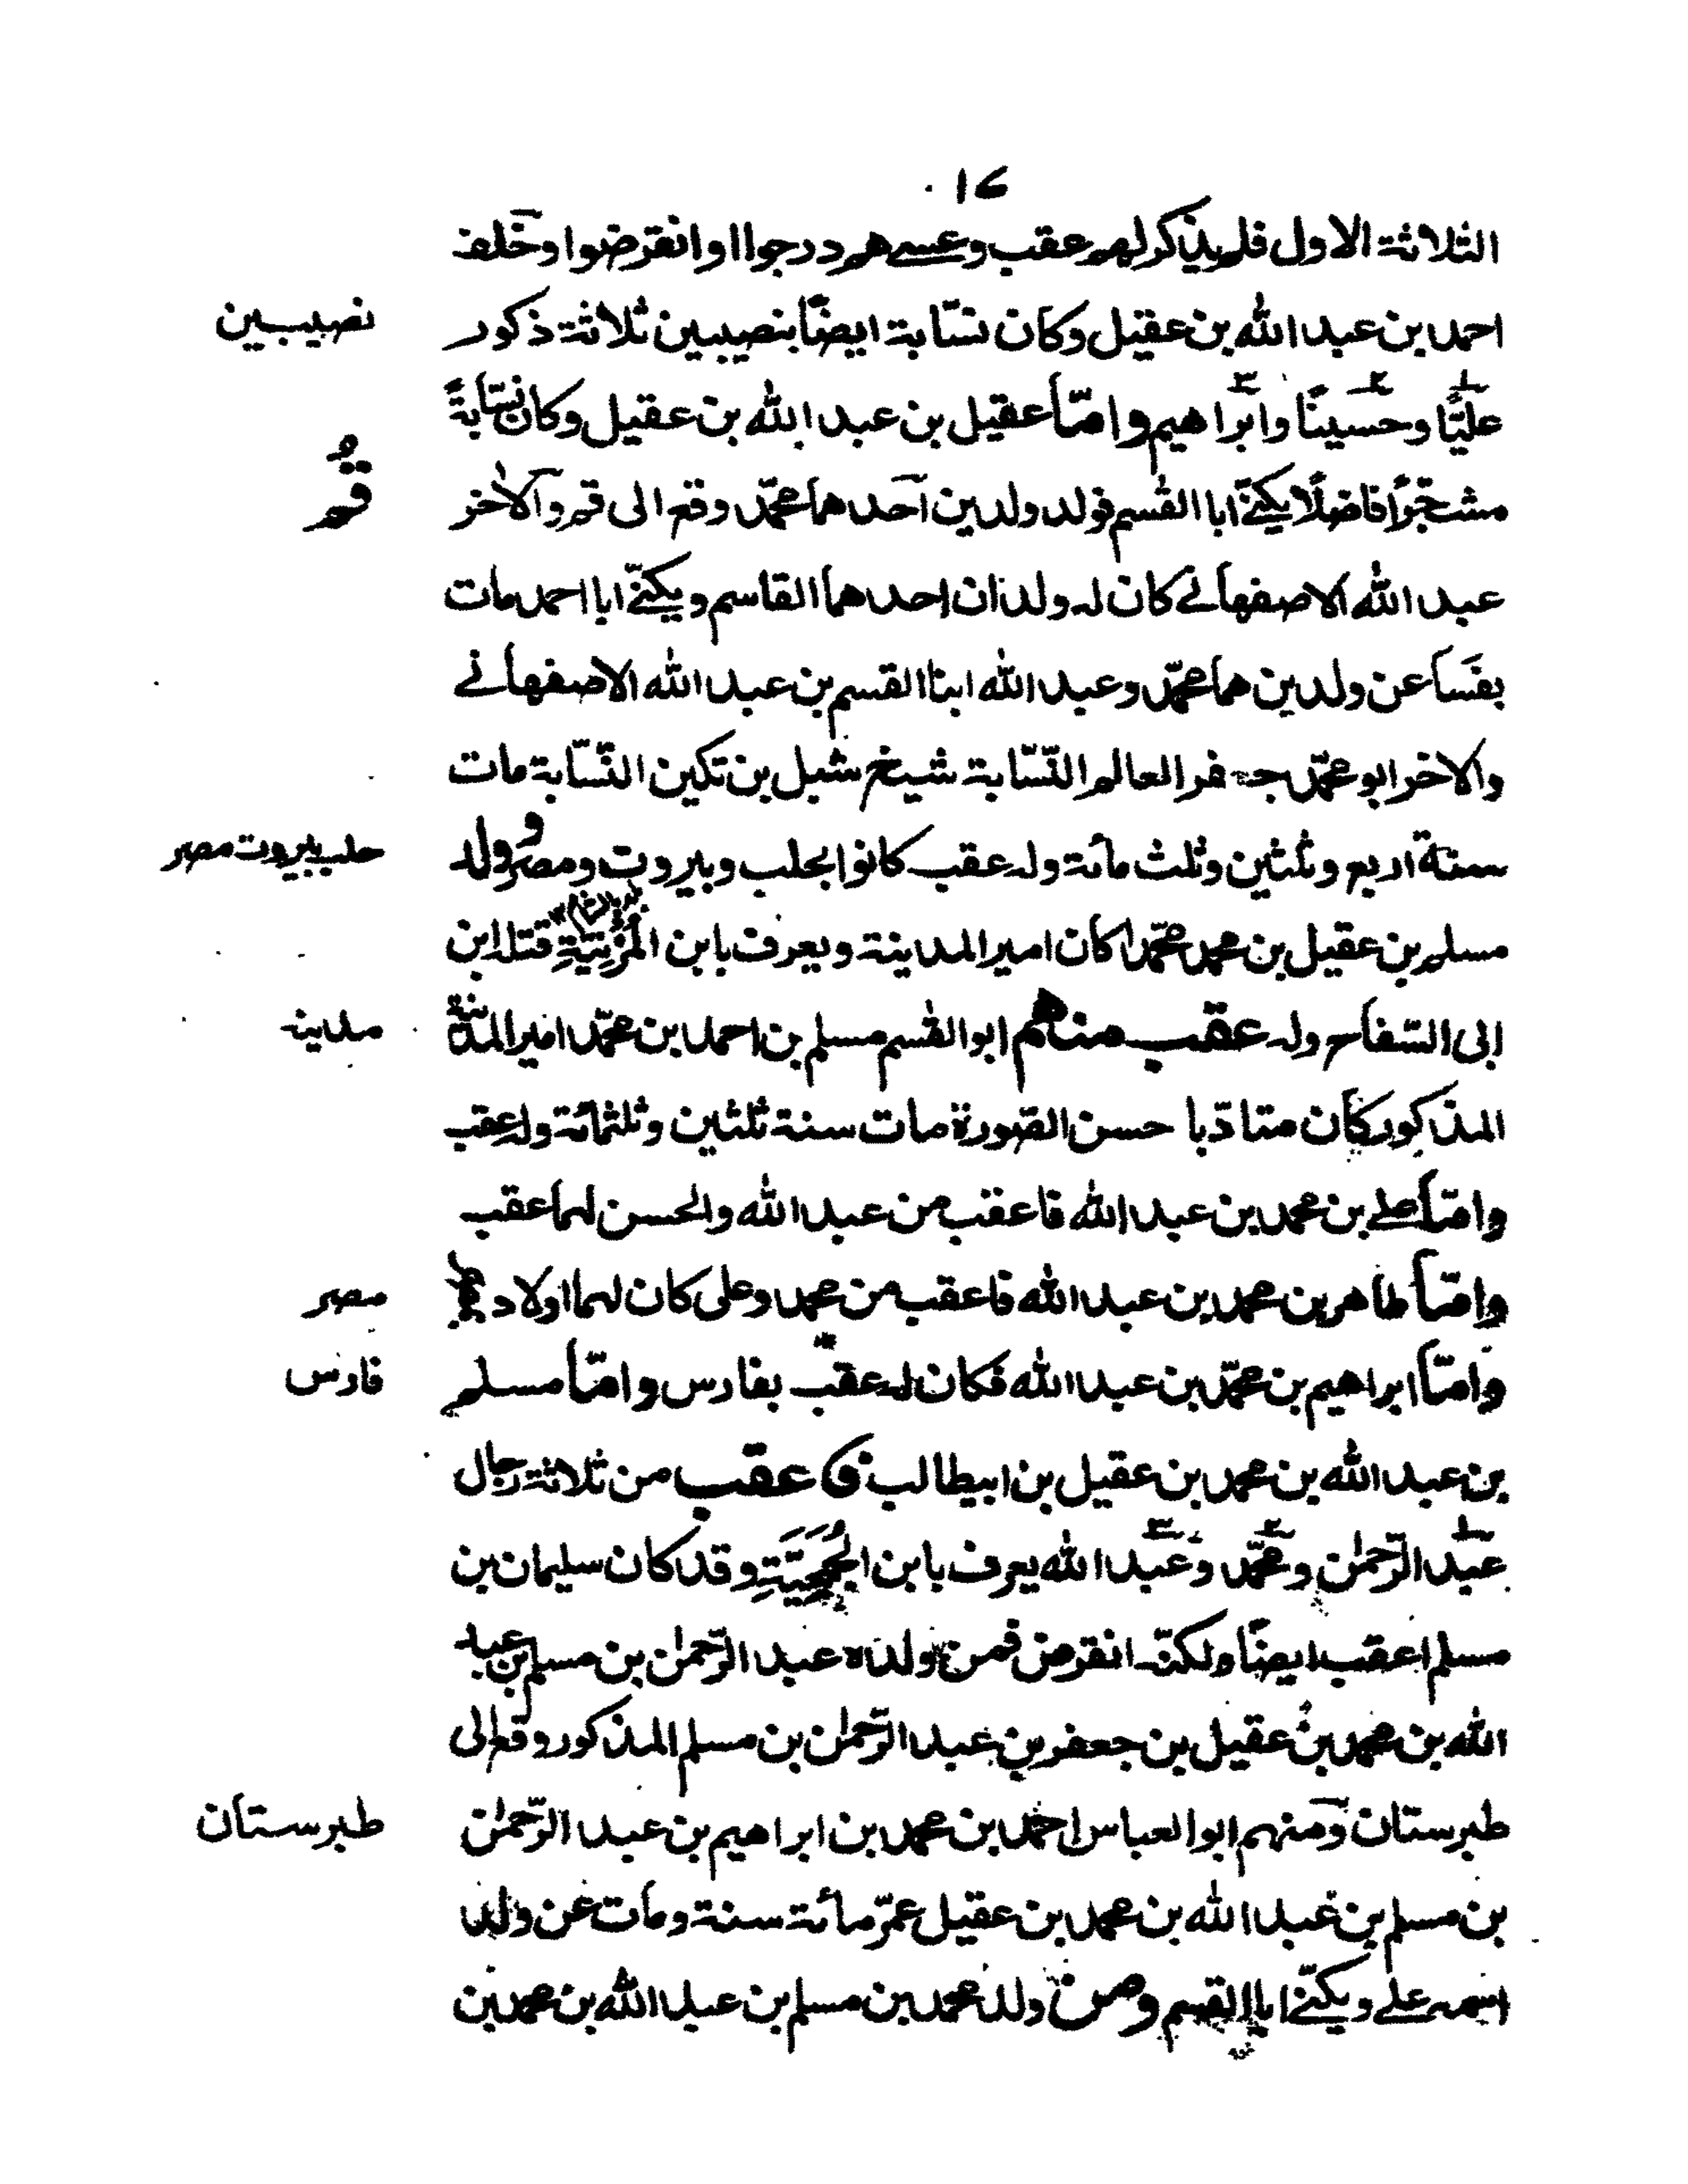 ١٤
الثلاثة الاول فلم يذكر لهم عقب وعسى هم درجوا او انقرضوا وخلف
احمد بن عبد الله بن عقيل وكان نسّابة ايضًا بنصيبين ثلاثة ذكور
نصيبين
عليًّا وحسينًا وابراهيم وامّا عقيل بن عبد الله بن عقيل وكان نسّابةً
مشجّرًا فاضلًا يكنّى ابا القسم فولد ولدين احدهما محمّد وقع الى قم والاخر
قُم
عبد الله الاصفهانى كان له ولدان احدهما القاسم ويكنّى ابا احمد مات
بفَسا عن ولدين هما محمّد وعبد الله ابنا القسم بن عبد الله الاصفهانى
والاخر ابو محمّد جعفر العالم النّسّابة شيخ شبل بن تكين النّسّابة مات
سنة اربع وثلثين وثلث مائة وله عقب كانوا بحلب وبيروت ومصر وولد
حلب بيروت مصر
مسلم بن عقيل بن محمد محمّدا كان امير المدينة ويعرف بابن المُزَنِيَّةِ قتله ابن
ابى السّفاح وله عقب منهم ابو القسم مسلم بن احمد بن محمّد امير المدينة
مدينه
المذكور كان متادّبا حسن الصّورة مات سنة ثلثين وثلثمائة وله عقب
وامّا على بن محمد بن عبد الله فاعقب من عبد الله والحسن لهما عقب
وامّا طاهر بن محمد بن عبد الله فاعقب من محمد وعلى كان لهما اولاد
مصر
وامّا ابراهيم بن محمّد بن عبد الله فكان له عقب بفارس وامّا مسلم
فارس
بن عبد الله بن محمد بن عقيل بن ابيطالب فاعقب من ثلاثة رجال
عبد الرّحمٰن ومحمّد وعبد الله يعرف بابن الجُمَحِيَّةِ وقد كان سليمان بن
مسلم اعقب ايضًا ولكنّه انقرض فمن ولده عبد الرّحمٰن بن مسلم بن عبد
الله بن محمد بن عقيل بن جعفر بن عبد الرّحمٰن بن مسلم المذكور وقع الى
طبرستان ومنهم ابو العباس احمد بن محمد بن ابراهيم بن عبد الرّحمٰن
طبرستان
بن مسلم بن عبد الله بن محمد بن عقيل عمّر مائة سنة ومات عن ولد
اسمه على ويكنّى ابا القسم ومن ولد محمد بن مسلم بن عبد الله بن محمد بن